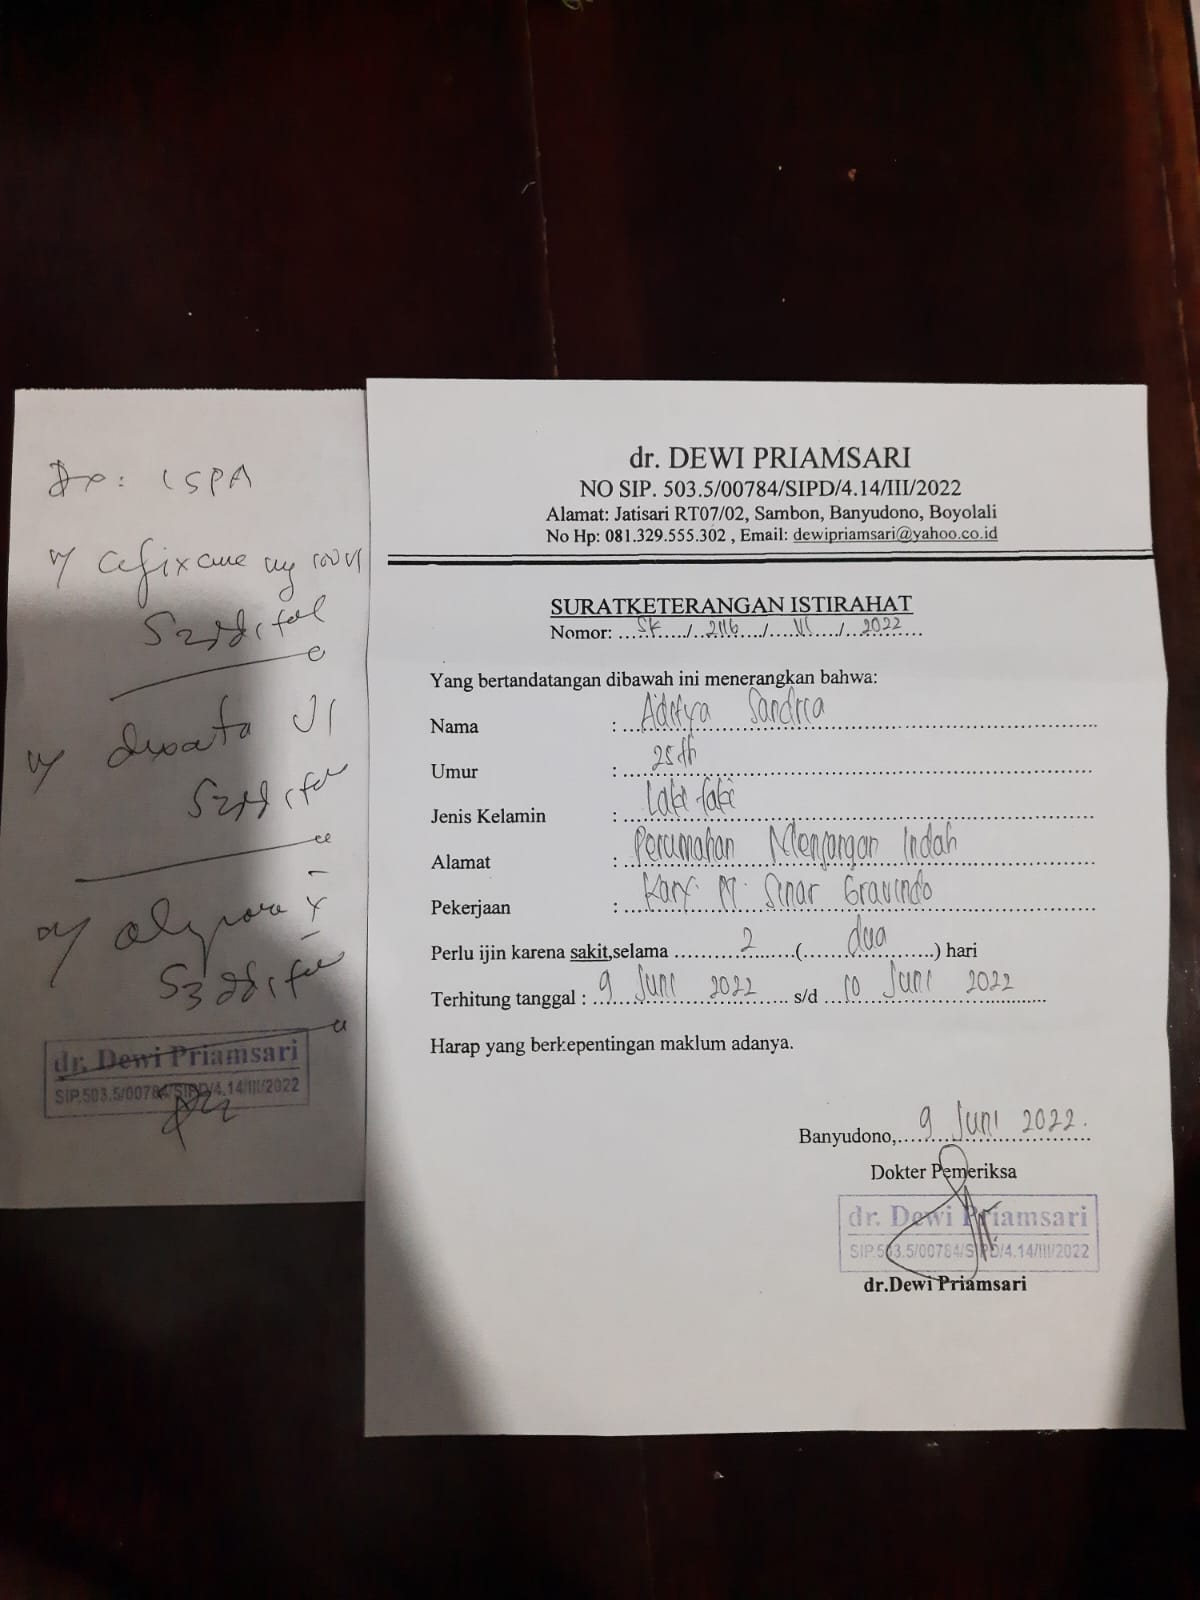 Dx: ISPA
Cefixime mg 100
S2dd1
S2dd1
S3dd1
dr. Dewi Priamsari
SIP.503.5/00784/SIPD/4.14/III/2022
dr. DEWI PRIAMSARI
NO SIP. 503.5/00784/SIPD/4.14/III/2022
Alamat: Jatisari RT07/02, Sambon, Banyudono, Boyolali
No Hp: 081.329.555.302 , Email: dewipriamsari@yahoo.co.id
SURATKETERANGAN ISTIRAHAT
Nomor: SK / 2116 / VI / 2022
Yang bertandatangan dibawah ini menerangkan bahwa:
Nama : Aditya Sandria
Umur : 25 th
Jenis Kelamin : Laki-laki
Alamat : Perumahan Menjangan Indah
Pekerjaan : Kary. Sinar Gravindo
Perlu ijin karena sakit,selama 2 (dua) hari
Terhitung tanggal : 9 Juni 2022 s/d 10 Juni 2022
Harap yang berkepentingan maklum adanya.
Banyudono, 9 Juni 2022.
Dokter Pemeriksa
dr. Dewi Priamsari
SIP.503.5/00784/SIPD/4.14/III/2022
dr.Dewi Priamsari